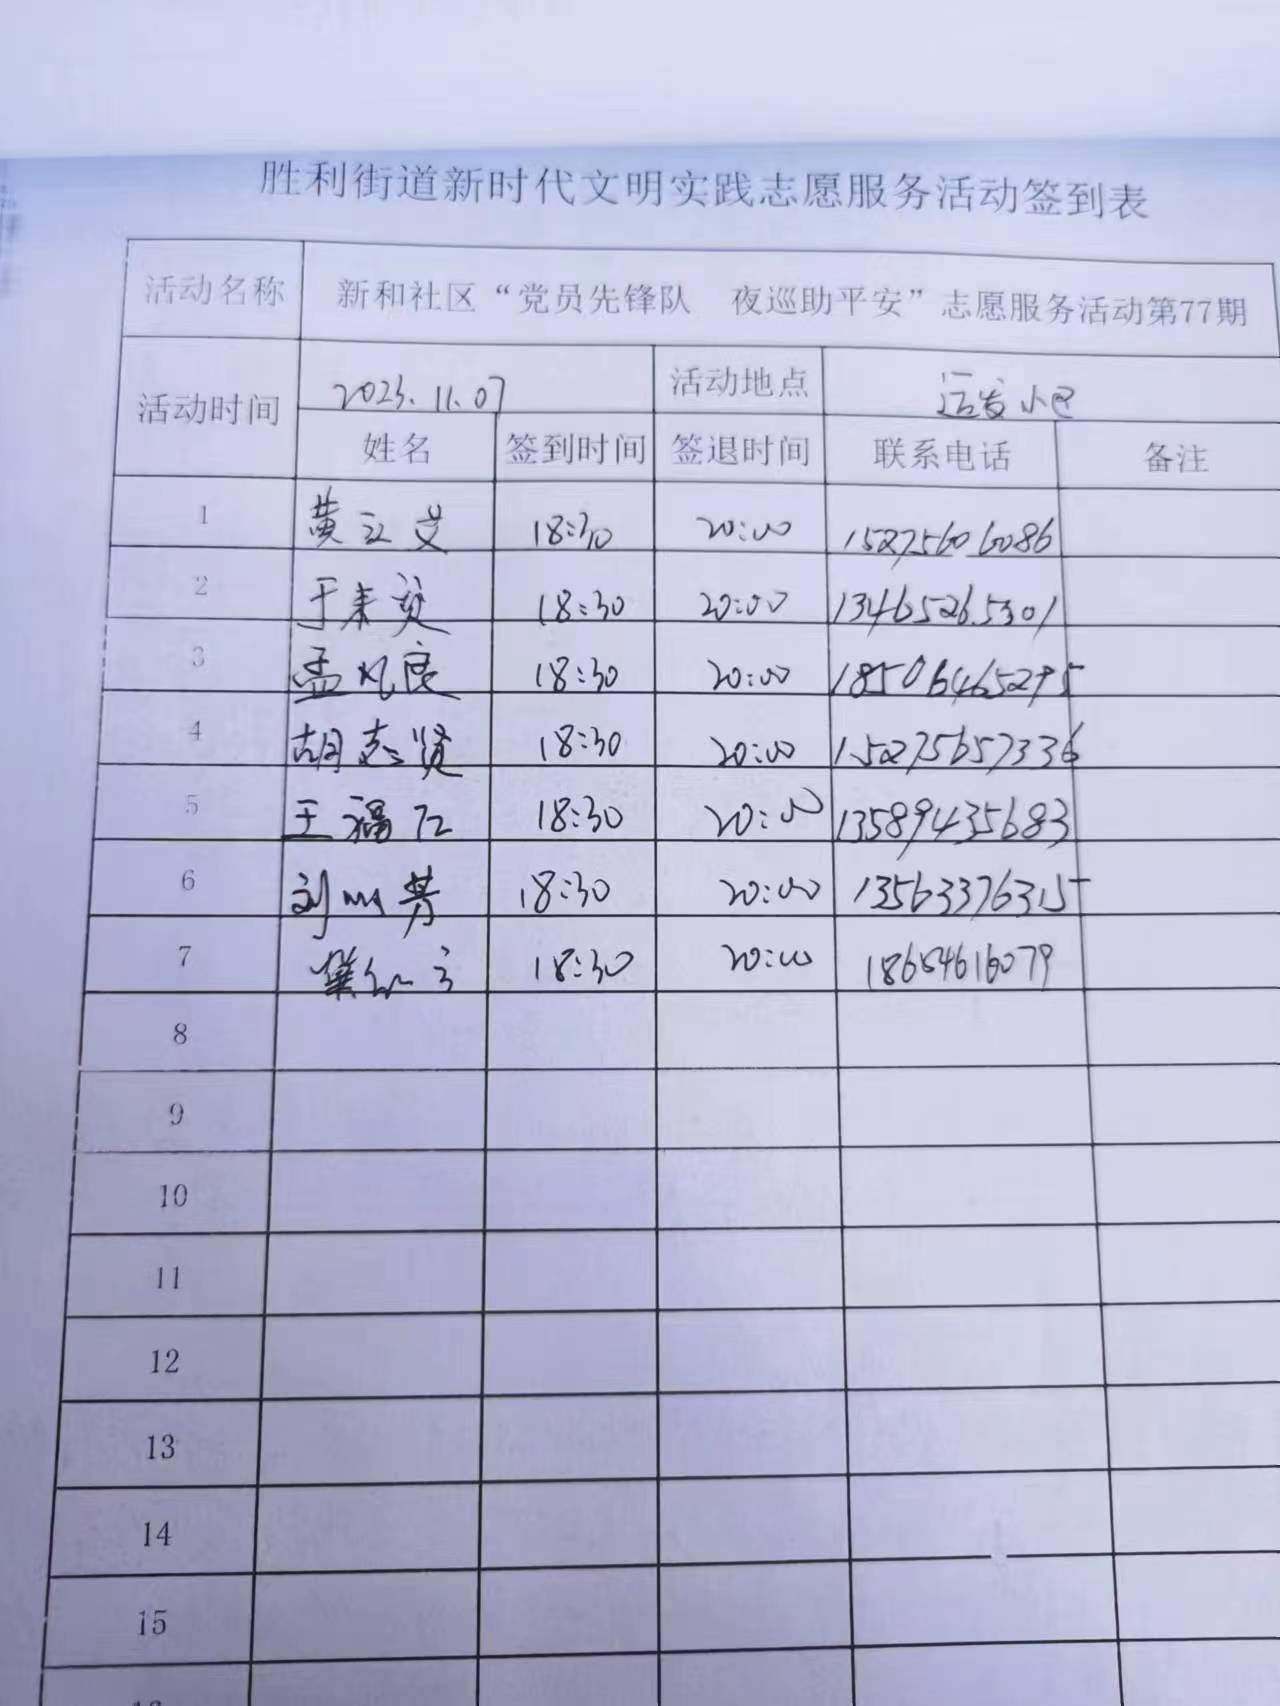 胜利街道新时代文明实践志愿服务活动签到表
活动名称 新和社区“党员先锋队 夜巡助平安”志愿服务活动第77期
活动时间 2023.11.07 活动地点 运发小区
姓名 签到时间 签退时间 联系电话 备注
1 黄立英 18:30 20:00 15275606086
2 于来 18:30 20:00 13465265301
3 孟凡良 18:30 20:00 18506465295
4 胡志贤 18:30 20:00 15275657336
5 王福仁 18:30 20:00 13589435683
6 刘 芳 18:30 20:00 13563376315
7 18:30 20:00 18654616079
8
9
10
11
12
13
14
15